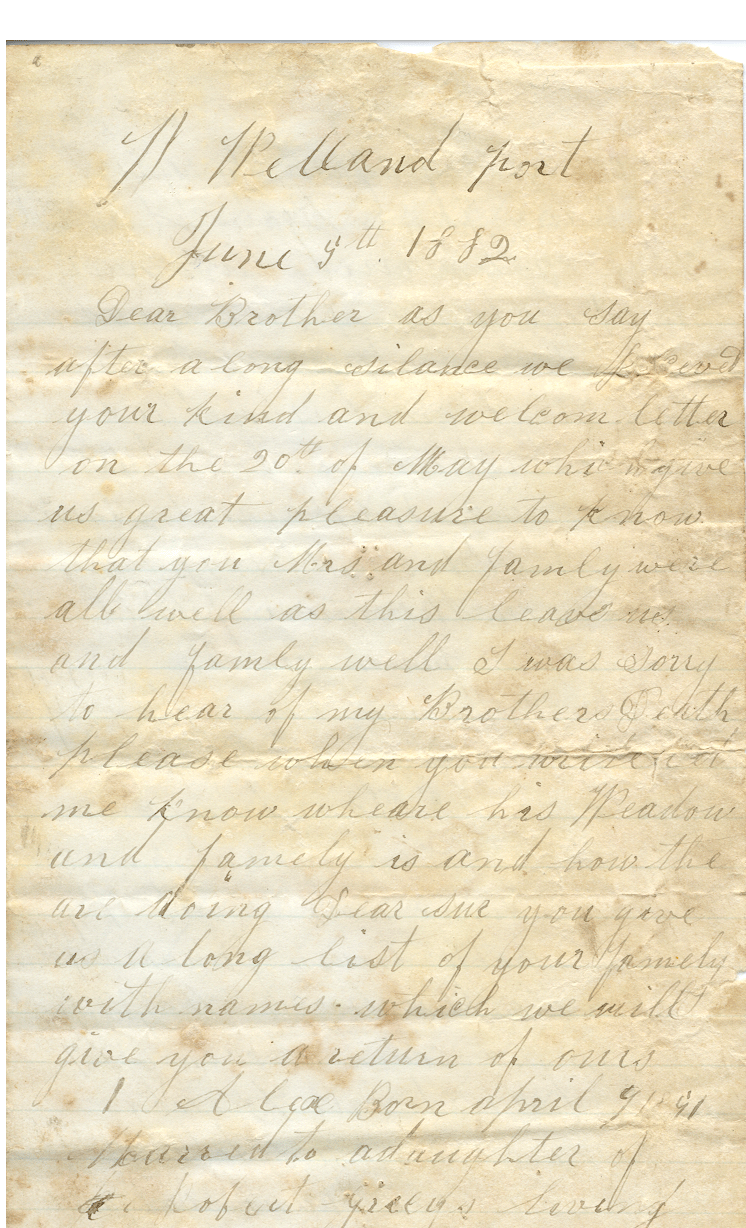 Welland port
June 5th. 1882
Dear Brother as you say
after a long silance we
your kind and welcom letter
on the 20th of May which give
us great pleasure to know
that you Mrs and famly were
all well as this leave us
and famly well I was Sorry
to hear of my Brothers Death
please when you write let
me know wheare his Weadow
and famely is and how the
are doing Dear sur you give
us a long list of your famely
with names which we will
give you a return of ours
1 Alex Born april
Marred to a daughter of
Robert living